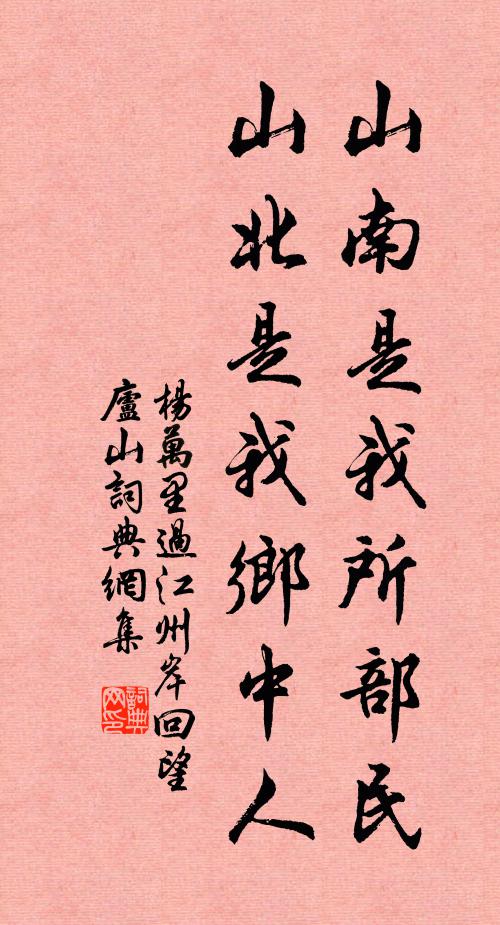 山南是我所部民
山北是我鄉中人
楊萬里過江州岸回望
廬山詞典網集
詞典
网印